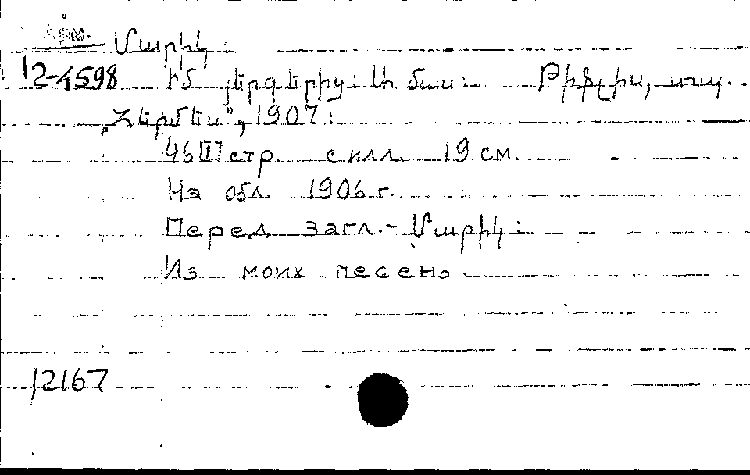 Арм.
Մարիկ։
12-4598 Իմ յերգերից։ Ա. մաս։ Թիֆլիս, տպ.
„Հերմես”, 1907։
46 [I] стр. с илл. 19 см.
На обл. 1906 г.
Перед загл.- Մարիկ։
Из моих песень.
12167